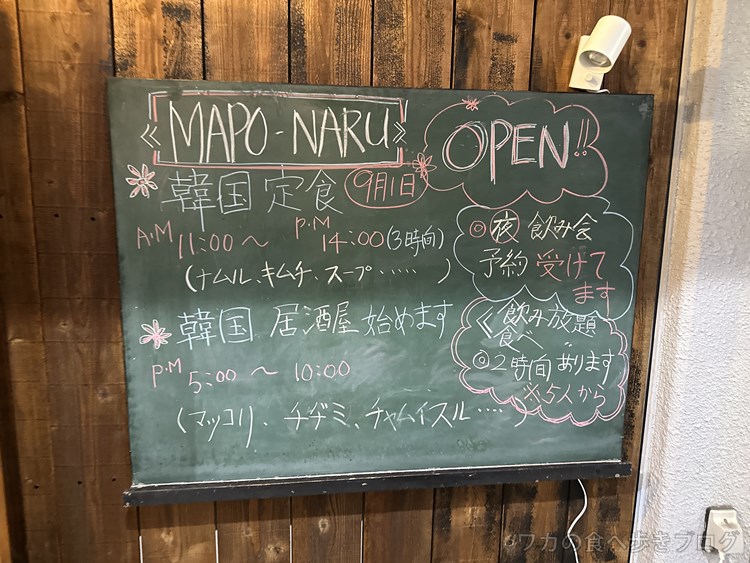 《 MAPO-NARU 》
OPEN!!
韓国定食 9月1日
A.M 11:00～ P.M 14:00(3時間)
(ナムル、キムチ、スープ‥‥‥)
韓国居酒屋始めます
P.M 5:00～10:00
(マッコリ、チヂミ、チャムイスル‥‥)
◎夜飲み会
予約受けて
ます
《飲み放題
食べ〃
◎2時間あります
※5人から
ワカの食べ歩きブログ